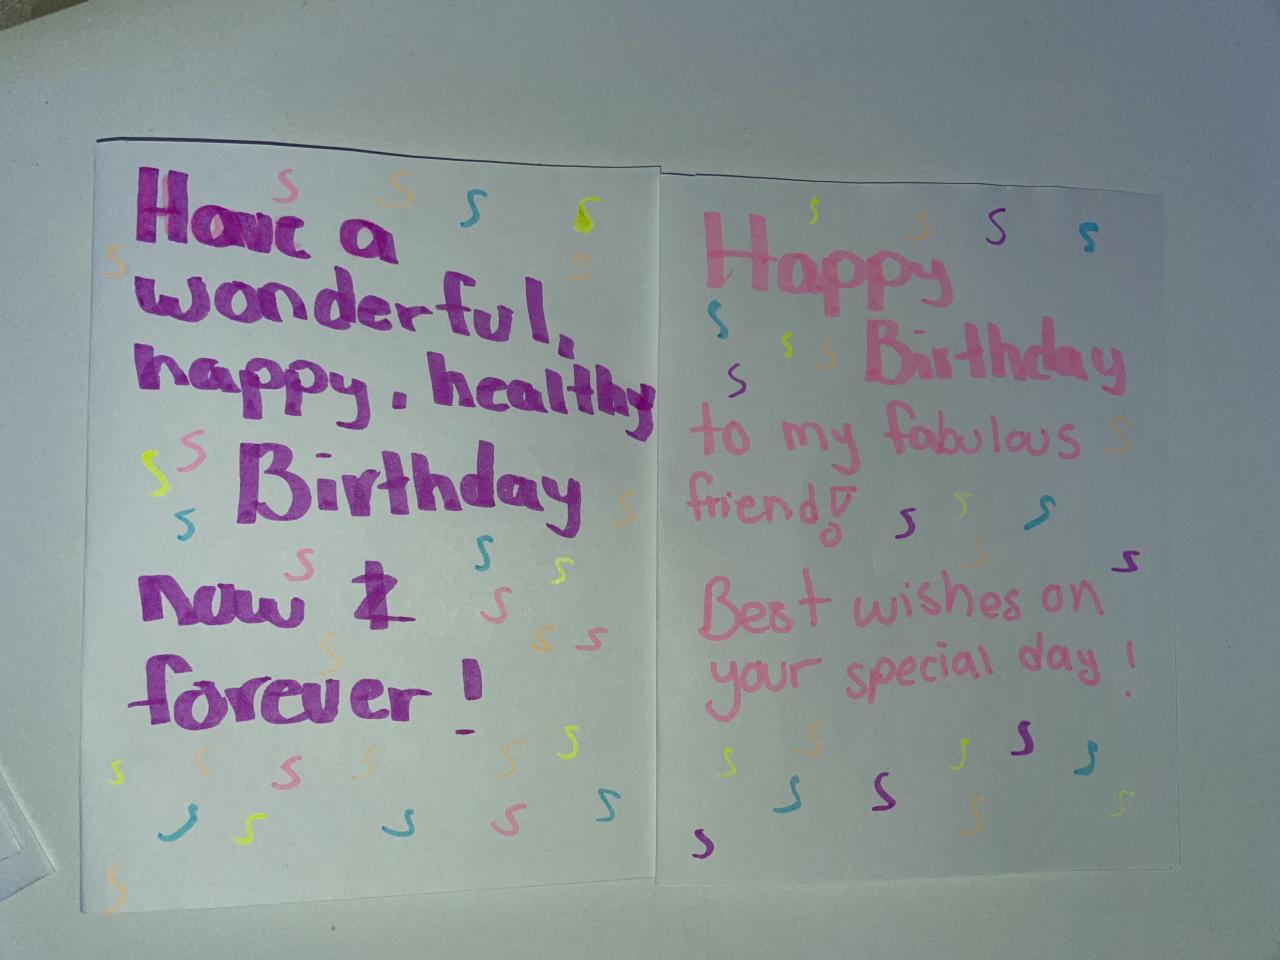 Have a
wonderful,
happy, healthy
Birthday
now &
forever!
Happy
Birthday
to my fabulous
friend!
Best wishes on
your special day!